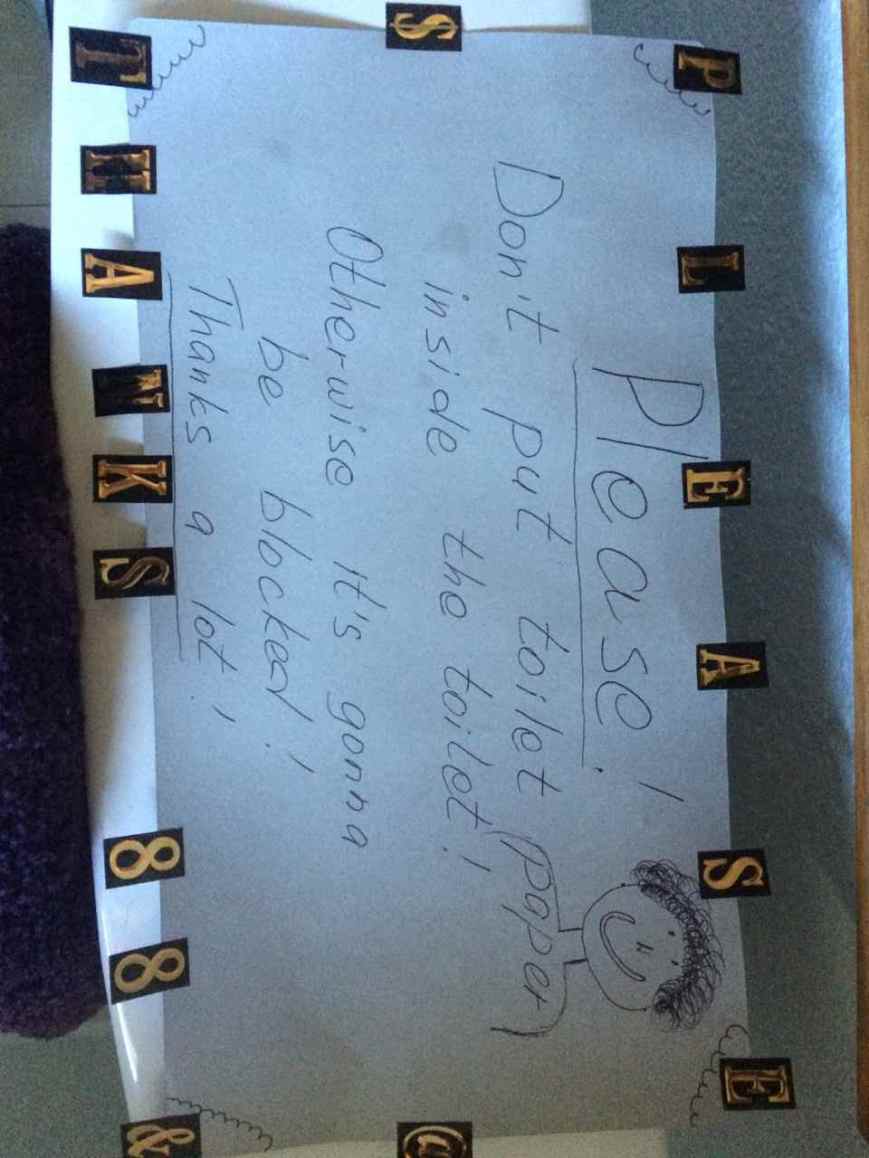 PLEASE
$
Please!
Don't put toilet paper
inside the toilet!
Otherwise it's gonna
be blocked!
Thanks a lot!
@
THANKS 88&